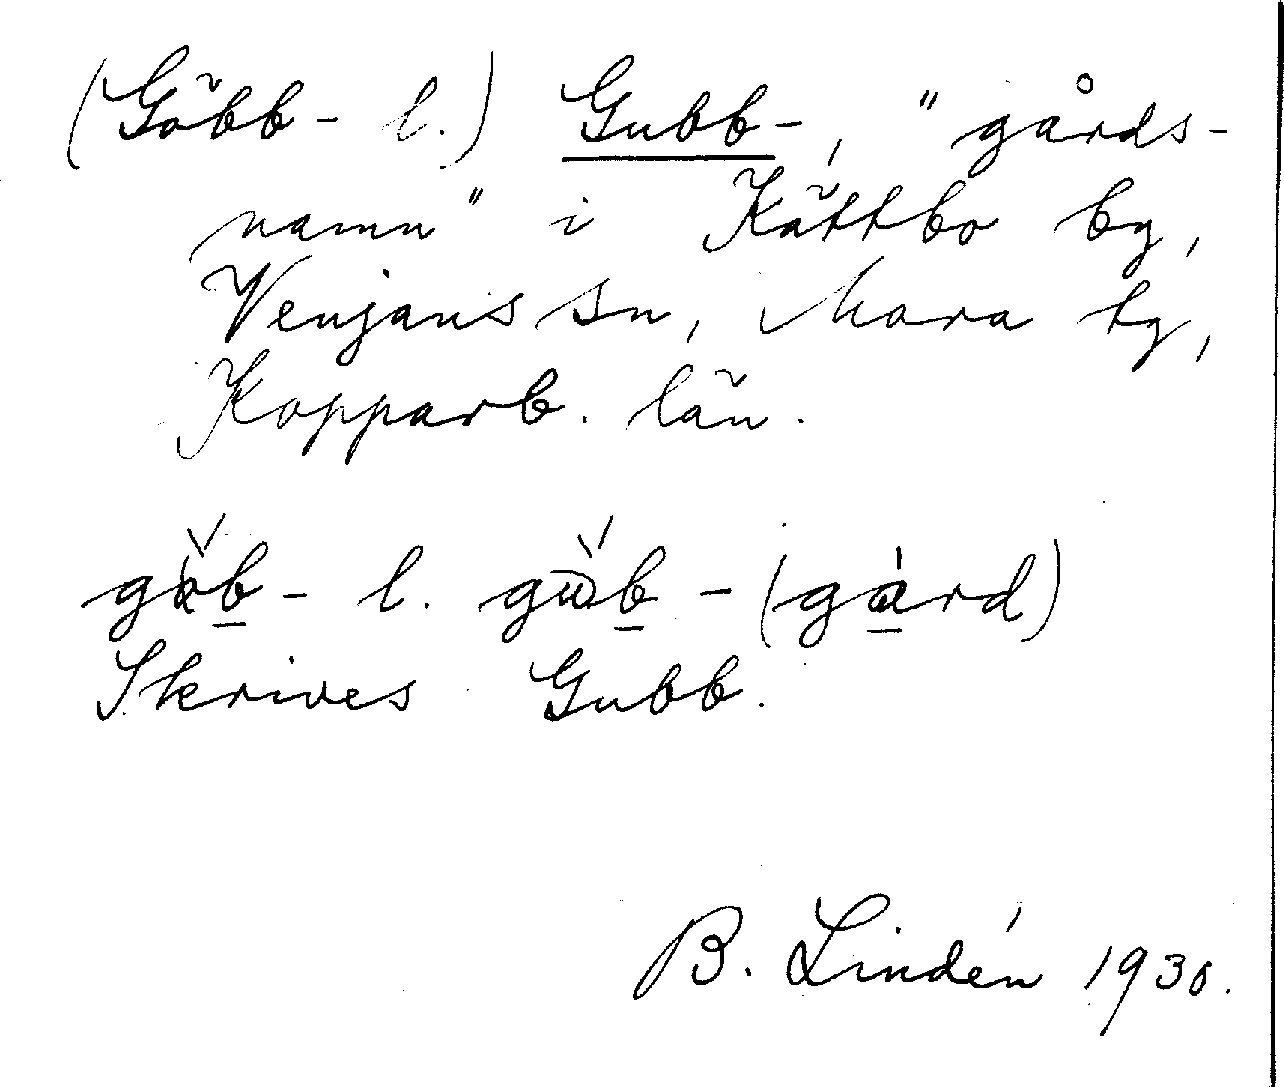 (Göbb- l.) Gubb-, "gårds-
namn" i Kättbo by,
Venjans sn, Mora tg,
Kopparb. län.
l. (gård)
Skrives Gubb.
B. Lindén 1930.